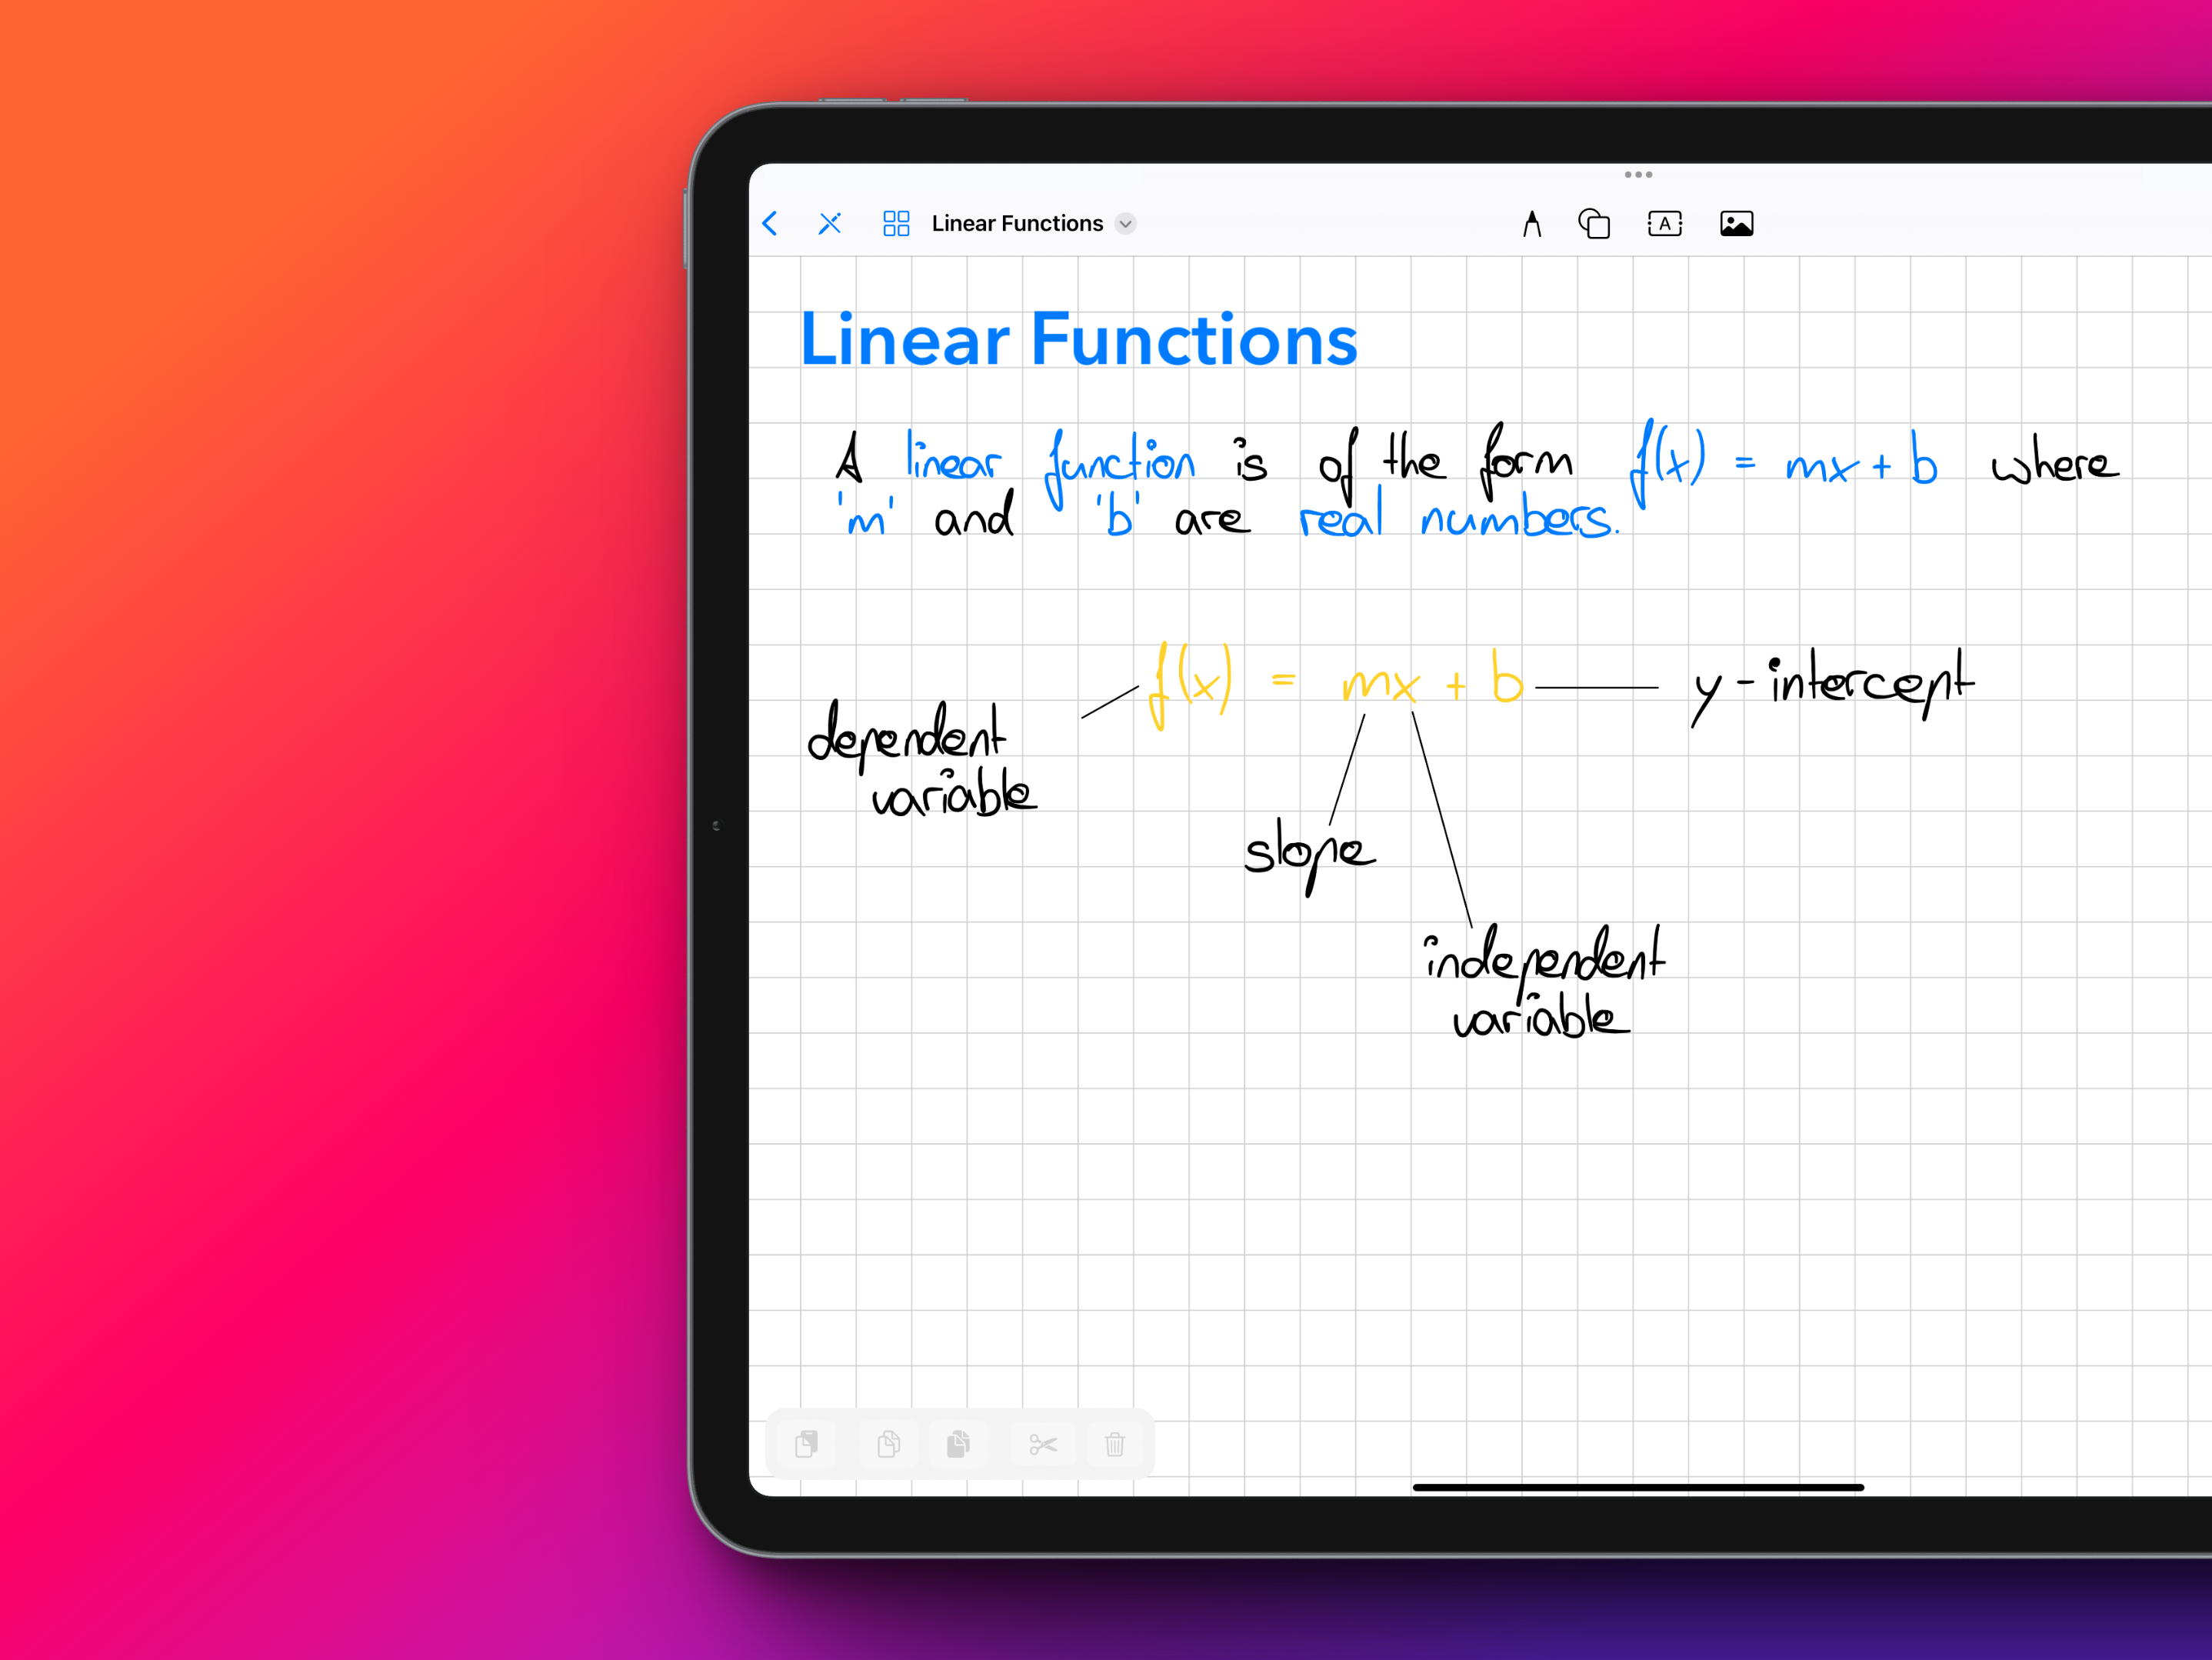 Linear Functions
A
Linear Functions
A linear function is of the form f(x) = mx + b where
'm' and 'b' are real numbers.
f(x) = mx + b
y-intercept
dependent
variable
slope
independent
variable